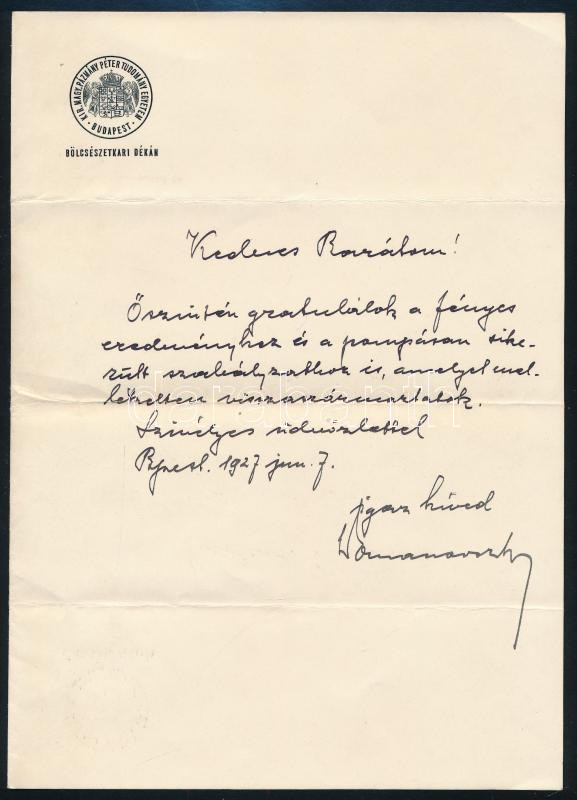 KIR. MAGY. PÁZMÁNY PÉTER TUDOMÁNY EGYETEM
· BUDAPEST ·
BÖLCSÉSZETKARI DÉKÁN
Kedves Barátom!
Őszintén gratulálok a fényes
eredményhez és a pompásan sike-
rült szabályzathoz is, amelyet mel-
lékelten visszaszármaztatok.
Szivélyes üdvözlettel
Bpest. 1927 jun. 7.
igaz híved
Domanovszky
darabanth